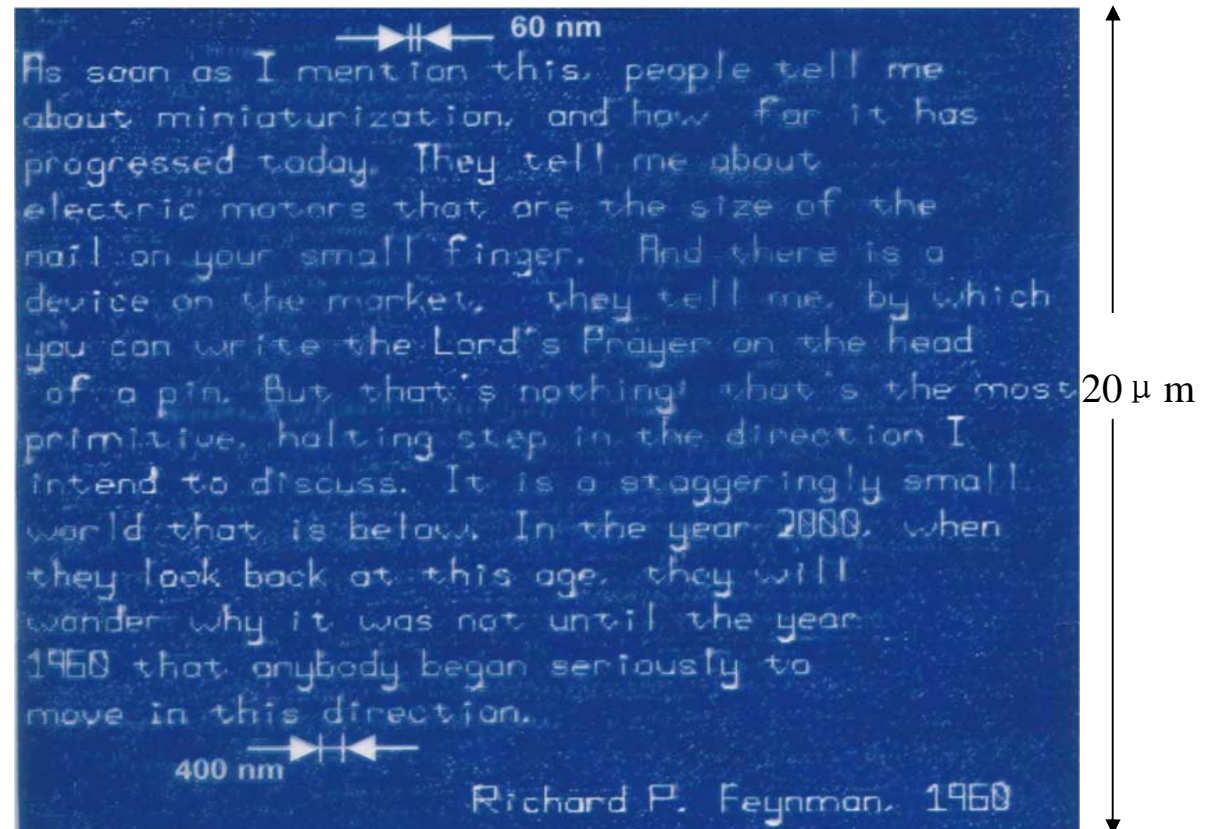 60 nm
As soon as I mention this, people tell me
about miniaturization, and how far it has
progressed today. They tell me about
electric motors that are the size of the
nail on your small finger. And there is a
device on the market, they tell me, by which
you can write the Lord's Prayer on the head
of a pin. But that's nothing; that's the most
primitive, halting step in the direction I
intend to discuss. It is a staggeringly small
world that is below. In the year 2000, when
they look back at this age, they will
wonder why it was not until the year
1960 that anybody began seriously to
move in this direction.
400 nm
Richard P. Feynman, 1960
20 μm